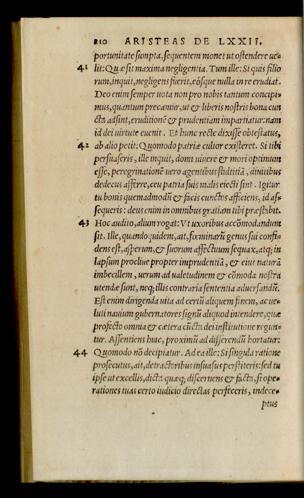 210 ARISTEAS DE LXXII.
portunitate sumpta, sequentem monet ut ostendere ue-
41 lit: Quæ sit maxima negligentia. Tum ille: Si quis filio
rum, inquit, negligens fuerit, eósque nulla in re erudiat.
Deo enim semper uota non pro nobis tantum concipi-
mus, quantum precamur, ut & liberis nostris bona cun
cta adsint, eruditionē & prudentiam impartiatur: nam
id dei uirtute euenit. Et hunc recte dixisse obtestatus,
42 ab alio petit: Quomodo patriæ cultor existeret. Si tibi
persuaseris, ille inquit, domi uiuere & mori optimum
esse, peregrinationē uero egentibus stultitiā, diuitibus
dedecus afferre, ceu patria suis malis eiecti sint. Igitur
tu bonis quemadmodū & facis cunctos afficiens, id as-
sequeris: deus enim in omnibus gratiam tibi præstabit.
43 Hoc audito, alium rogat: Vt uxoribus accōmodandum
sit. Ille, quandoquidem, ait, fœminarū genus sui confi-
dens est, asperum, & suorum affectuum sequax, atq; in
lapsum procliue propter imprudentiā, & eius naturā
imbecillem, uerum ad ualetudinem & cōmoda nostra
utendæ sunt, neq; illis contraria sententia aduersandū.
Est enim dirigenda uita ad certū aliquem finem, ac ue-
luti nauium gubernatores signū aliquod intendere, quæ
profecto omnia & cætera cūcta dei institutione regun-
tur. Assentiens huic, proximū ad disserendū hortatur:
44 Quomodo nō decipiatur. Ad ea ille: Si singula ratione
prosecutus, ait, detractoribus insuasus perstiteris: sed tu
ipse ut excellis, dicta quæq; discernens & facta, si ope-
rationes tuas certo iudicio directas perfeceris, indece-
ptus